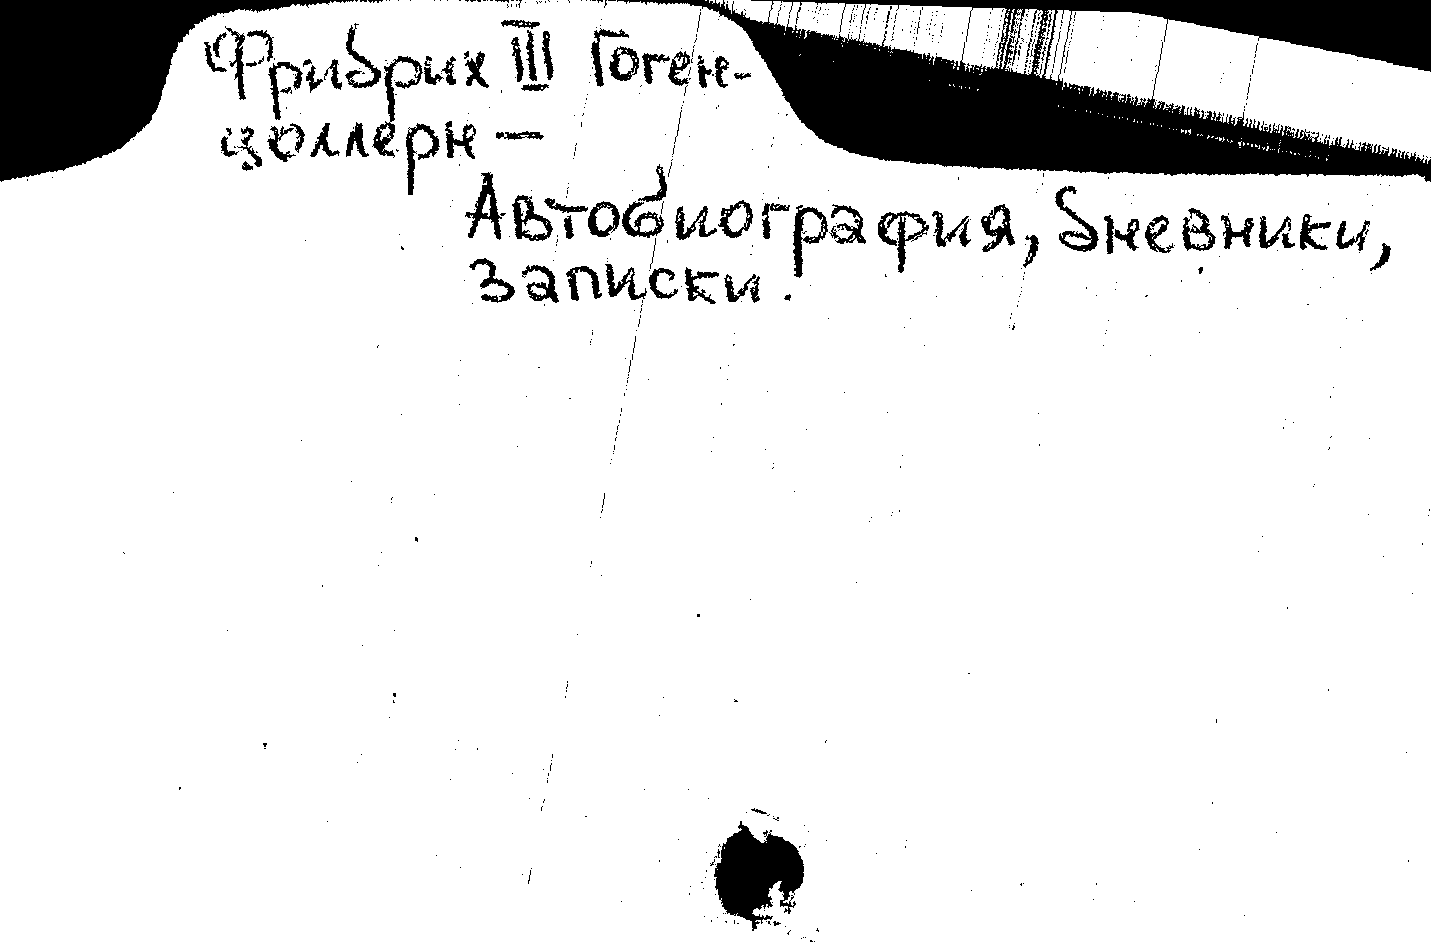 Фридрих III Гоген-
цоллерн —
Автобиография, дневники,
записки.